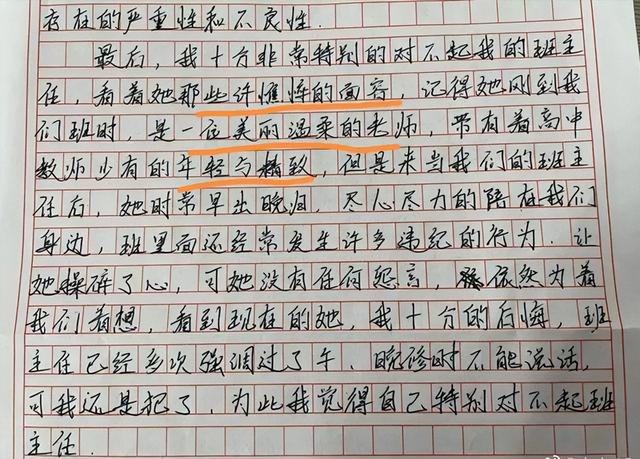 存在的严重性和不良性.
最后,我十分非常特别的对不起我的班主
任,看着她那些许憔悴的面容,记得她刚到我
们班时,是一位美丽温柔的老师,带有着高中
教师少有的年轻与精致,但是来当我们的班主
任后,她时常早出晚归,尽心尽力的陪在我们
身边,班里面还经常发生许多违纪的行为.让
她操碎了心,可她没有任何怨言,依然为着
我们着想,看到现在的她,我十分的后悔,班
主任已经多次强调过了午、晚诊时不能说话,
可我还是犯了,为此我觉得自己特别对不起班
主任.